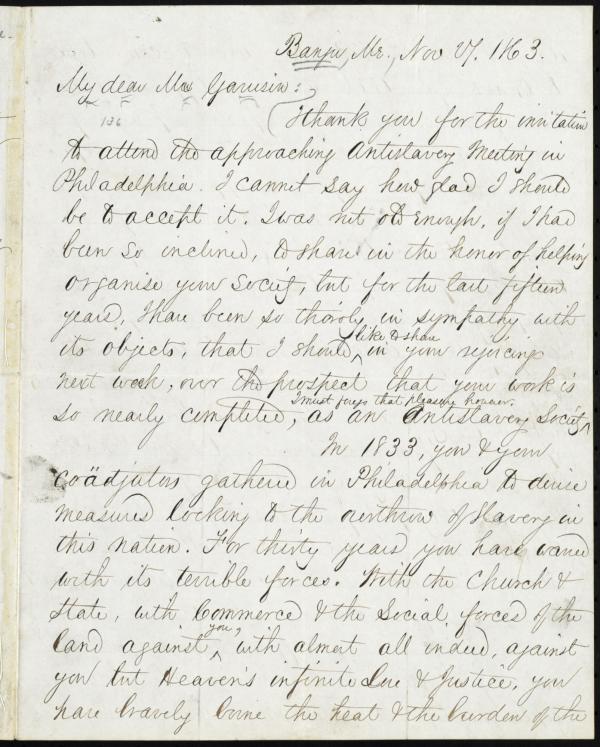 Bangor, Me., Nov 27. 1863.
My dear Mr. Garrison:
136
Thank you for the invitation
to attend the approaching Antislavery Meeting in
Philadelphia. I cannot say how glad I should
be to accept it. I was not old enough, if I had
been so inclined, to share in the honor of helping
organise your Society, but for the last fifteen
years, I have been so thoroly in sympathy with
like to share
its objects, that I should ^ in your rejoicings
next week, over the prospect that your work is
I must forego that pleasure however.
so nearly completed, as an Antislavery Society ^
In 1833, you & your
coädjutors gathered in Philadelphia to devise
measures looking to the overthrow of Slavery in
this nation. For thirty years you have warred
with its terrible forces. With the Church &
State, with Commerce & the Social forces of the
you,
land against ^ with almost all indeed, against
you but Heaven's infinite Love & Justice, you
have bravely borne the heat & the burden of the